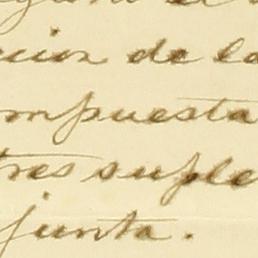 cion de la
mpuesta
tres suple
junta.